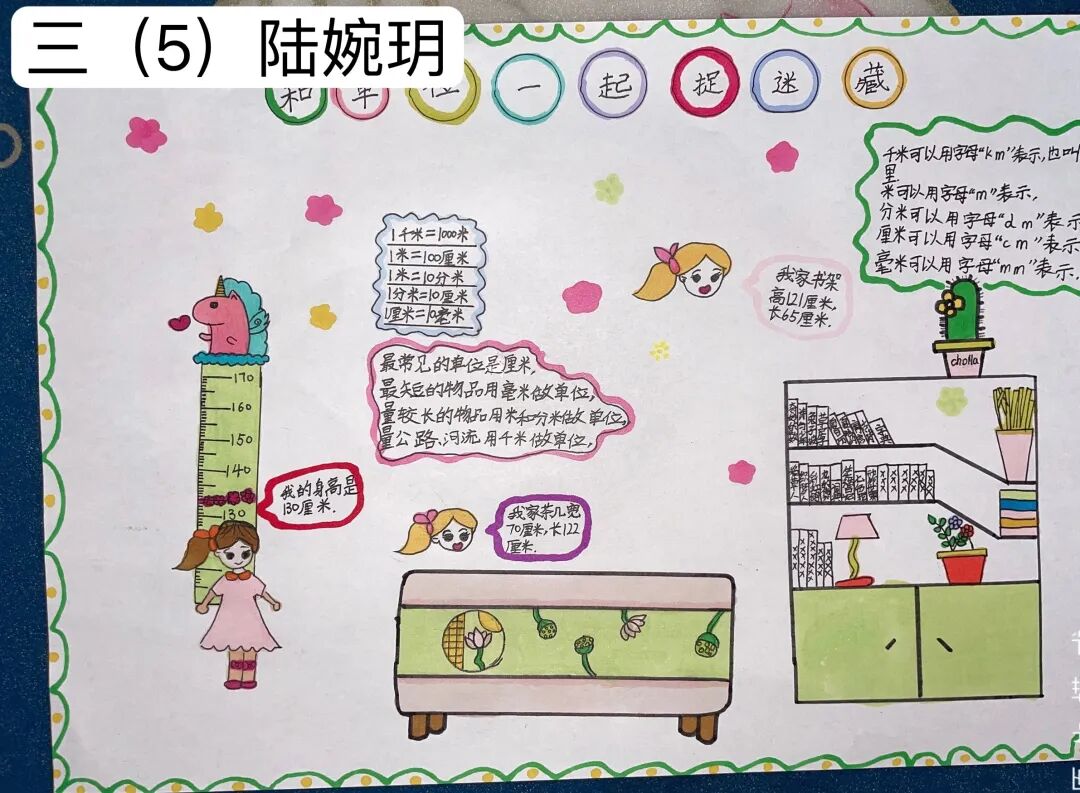 三（5）陆婉玥
和单位一起捉迷藏
千米可以用字母“km”表示,也叫
里.
米可以用字母“m”表示,
分米可以用字母“dm”表示
厘米可以用字母“cm”表示
毫米可以用字母“mm”表示.
1千米=1000米
1米=100厘米
1米=10分米
1分米=10厘米
1厘米=10毫米
我家书架
高121厘米,
长65厘米.
最常见的单位是厘米,
最短的物品用毫米做单位,
量较长的物品用米和分米做单位,
量公路、河流用千米做单位,
cholla
170
160
150
140
130
我的身高是
130厘米.
我家茶几宽
70厘米,长122
厘米.